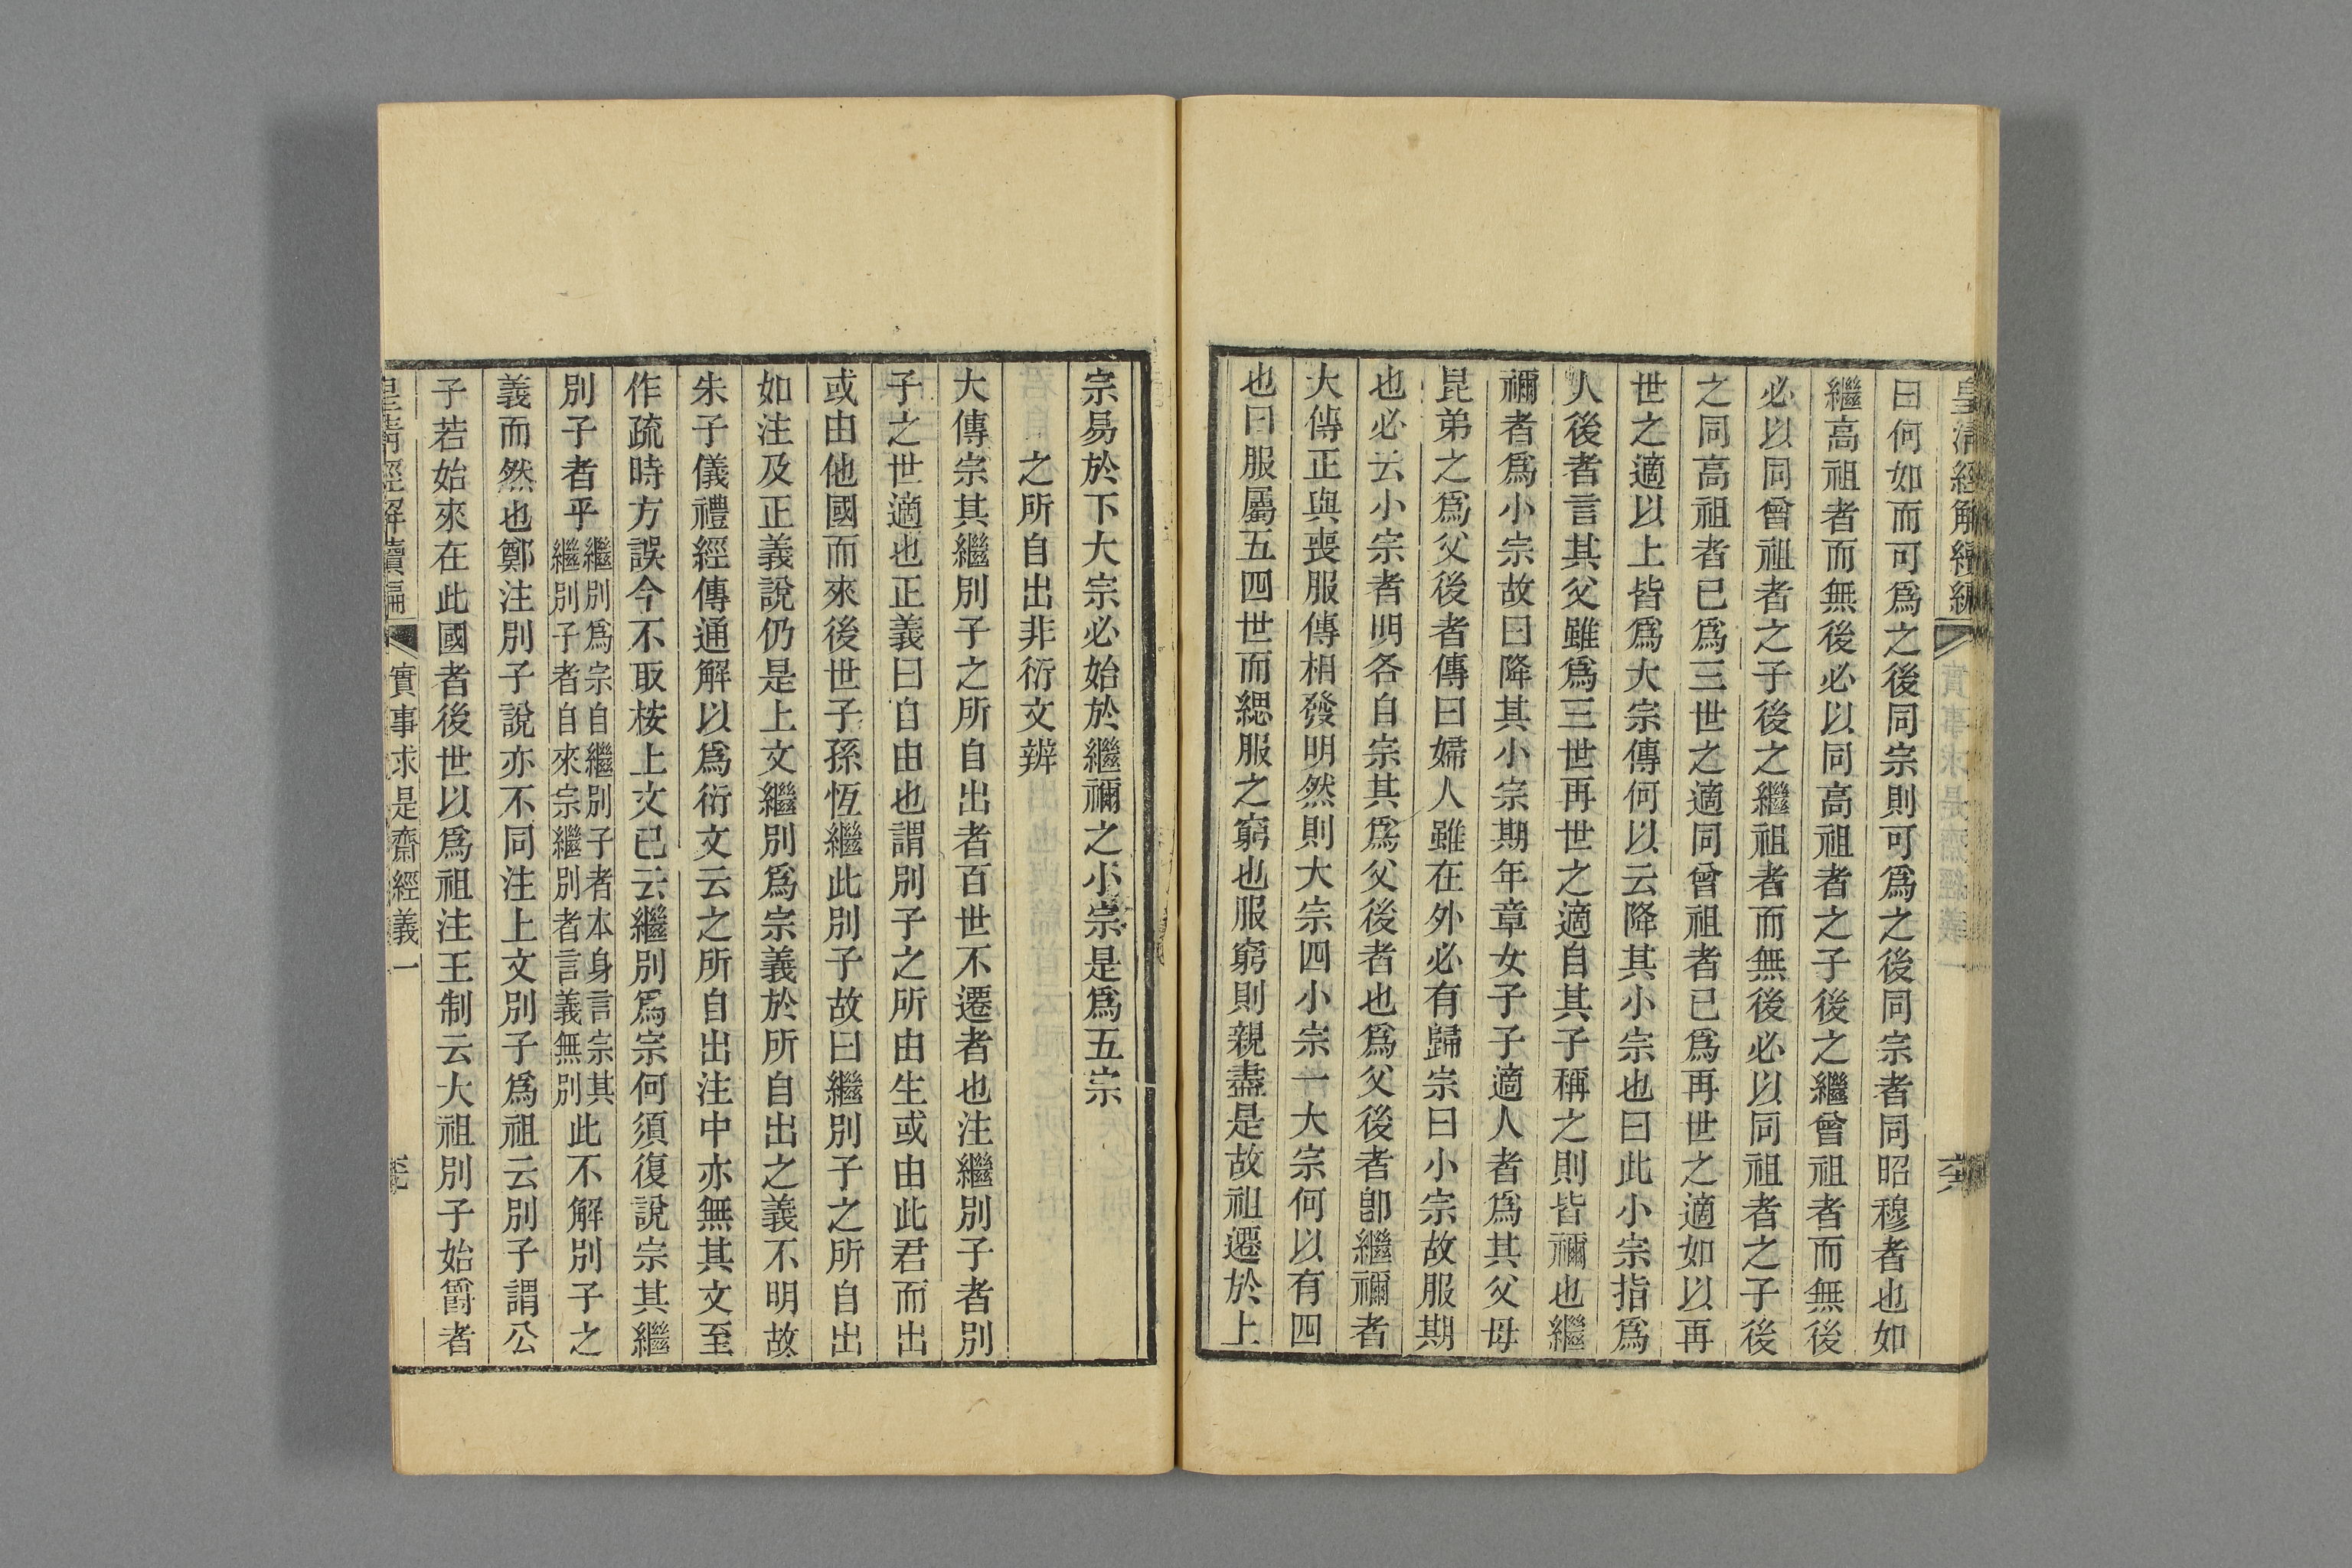 皇清經解續編
實事求是齋經義一
日何如而可爲之後同宗則可爲之後同宗者同昭穆者也如
繼高祖者而無後必以同高祖者之子後之繼曾祖者而無後
必以同曾祖者之子後之繼祖者而無後必以同祖者之子後
之同高祖者已爲三世之適同曾祖者已爲再世之適如以再
世之適以上皆爲大宗傳何以云降其小宗也曰此小宗指爲
人後者言其父雖爲三世再世之適自其子稱之則皆禰也繼
禰者爲小宗故曰降其小宗期年章女子子適人者爲其父母
昆弟之爲父後者傳曰婦人雖在外必有歸宗曰小宗故服期
也必云小宗者明各自宗其爲父後者也爲父後者卽繼禰者
大傳正與喪服傳相發明然則大宗四小宗一大宗何以有四
也曰服屬五四世而緦服之窮也服窮則親盡是故祖遷於上
宗易於下大宗必始於繼禰之小宗是爲五宗
之所自出非衍文辨
大傳宗其繼別子之所自出者百世不遷者也注繼別子者別
子之世適也正義曰自由也謂別子之所由生或由此君而出
或由他國而來後世子孫恆繼此別子故曰繼別子之所自出
如注及正義說仍是上文繼別爲宗義於所自出之義不明故
朱子儀禮經傳通解以爲衍文云之所自出注中亦無其文至
作疏時方誤今不取桉上文已云繼別爲宗何須復說宗其繼
別子者乎繼別爲宗自繼別子者本身言宗其繼別子者自來宗繼別者言義無別此不解別子之
義而然也鄭注別子說亦不同注上文別子爲祖云別子謂公
子若始來在此國者後世以爲祖注王制云大祖別子始爵者
皇清經解續編
實事求是齋經義一